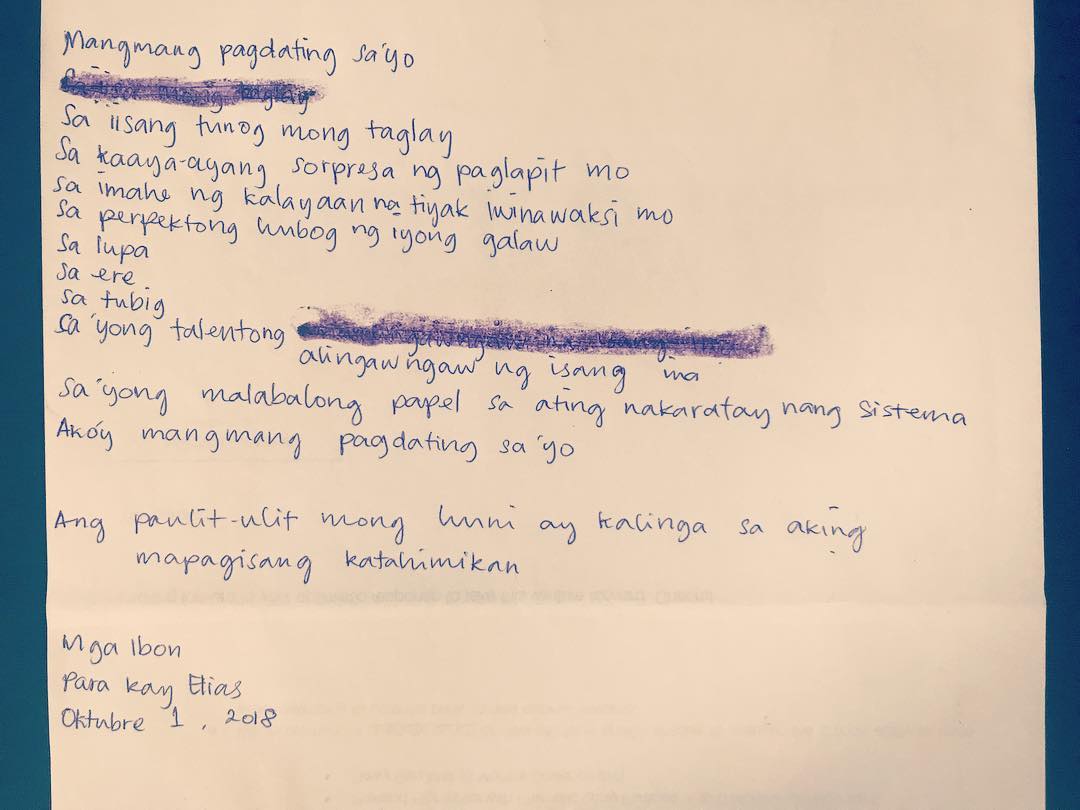 Mangmang pagdating sa'yo
Sa iisang tunog mong taglay
Sa kaaya-ayang sorpresa ng paglapit mo
sa imahe ng kalayaan na tiyak iwinawaksi mo
sa perpektong hubog ng iyong galaw
sa lupa
sa ere
sa tubig
sa 'yong talentong
alingawngaw ng isang ina
sa 'yong malabalong papel sa ating nakaratay nang sistema
Ako'y mangmang pagdating sa 'yo
Ang paulit-ulit mong huni ay kalinga sa aking
mapagisang katahimikan
Mga Ibon
Para kay Elias
Oktubre 1, 2018